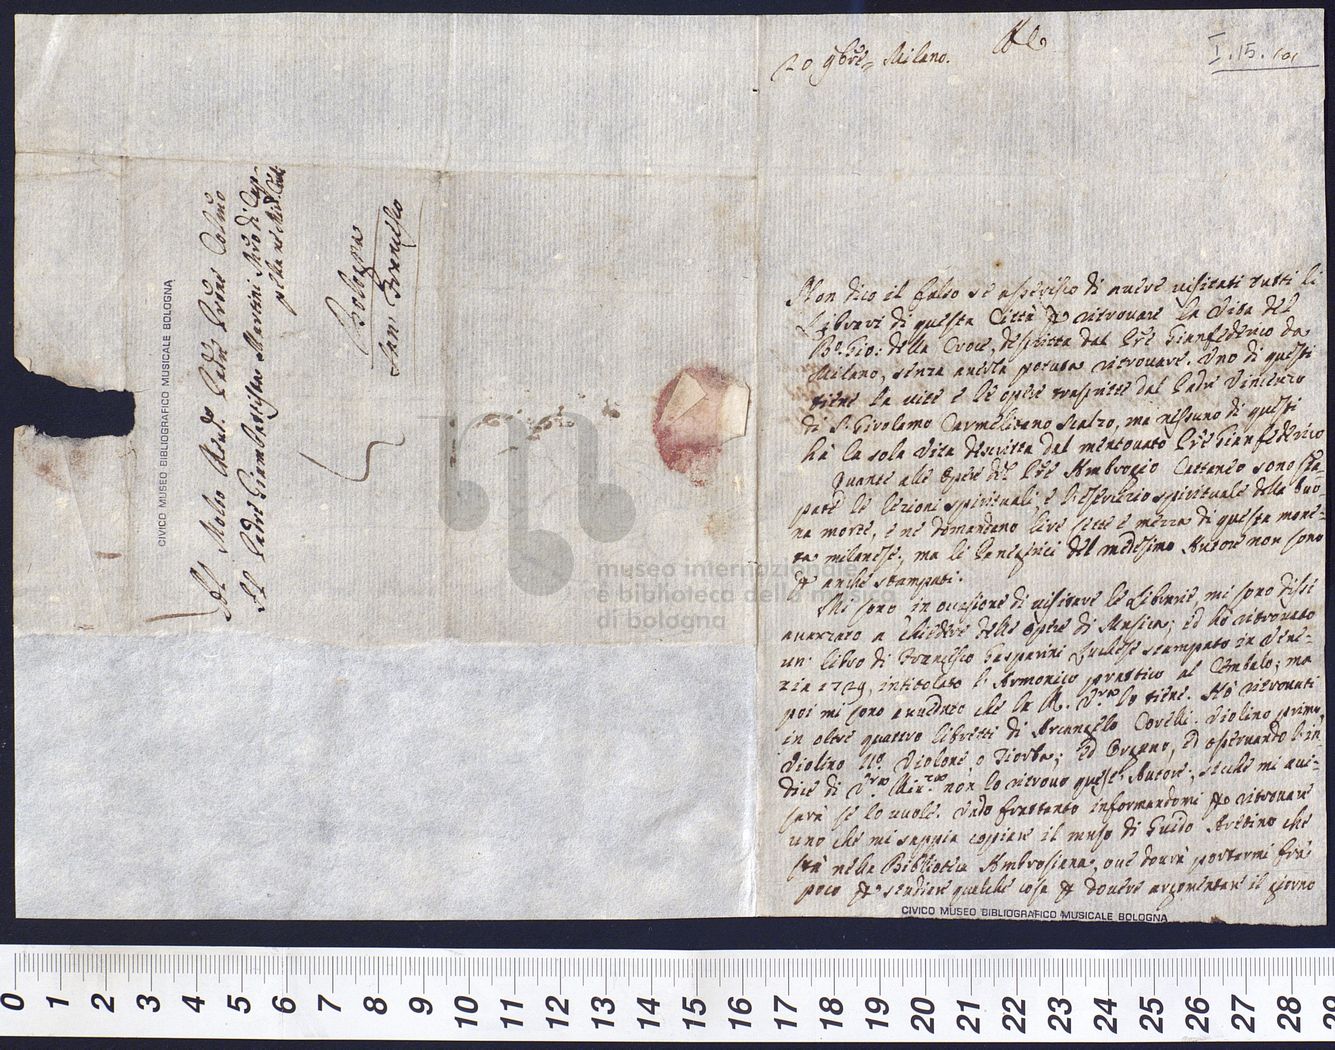 20 9bre Milano.
I.15.101
Non dico il falso se asserisco di avere visitati tutti li
Librari di questa Città per ritrovare la Vita del
Bo. Gio: della Croce, descritta dal Pre Gianfederico da
Milano, senza averla potuta ritrovare. Uno di questi
tiene la vita e le opere trascritte dal Padre Vincenzo
di S. Girolamo Carmelitano Scalzo, ma nessuno di questi
hà la sola Vita descritta dal mentovato Pre Gianfederico
Quanto alle Opere del Pre Ambrogio Cattaneo sono stam=
pate le lezioni spirituali, e l'esercizio spirituale della buo=
na morte, e ne domandano lire sette e mezza di questa mone=
ta milanese; ma li Panegirici del medesimo Autore non sono
per anche stampati.
Mi sono in occasione di visitare le Librerie mi sono
avanzato a chiedere delle Opere di Musica; ed hò ritrovato
un libro di Francesco Gasparini Luchese stampato in Vene=
zia 1729, intitolato l'Armonico prattico al Cimbalo; ma
poi mi sono avveduto che la R. V.ra lo tiene. Hò ritrovati
in oltre quattro libretti di Arcangelo Corelli. Violino primo
Violino IIo. Violone, o Tiorba; ed Organo, ed osservando l'in=
dice di V.ra non lo ritrovo quest'Autore; sicche mi avi=
sarà se lo vuole. Vado frattanto informandomi per ritrovare
uno che mi sappia copiare il muso di Guido Aretino che
stà nella Biblioteca Ambrosiana, ove dovrà portarmi frà
poco per sentire qualche cosa per dovere argomentare il giorno
CIVICO MUSEO BIBLIOGRAFICO MUSICALE BOLOGNA
Al Molto Revdo Padre Prone Colmo
Il Padre Giambattista Martini di Cap=
pella ne Min. Con.
Bologna
San Francesco
CIVICO MUSEO BIBLIOGRAFICO MUSICALE BOLOGNA
museo internazionale
e biblioteca della musica
di bologna
0 1 2 3 4 5 6 7 8 9 10 11 12 13 14 15 16 17 18 19 20 21 22 23 24 25 26 27 28 29